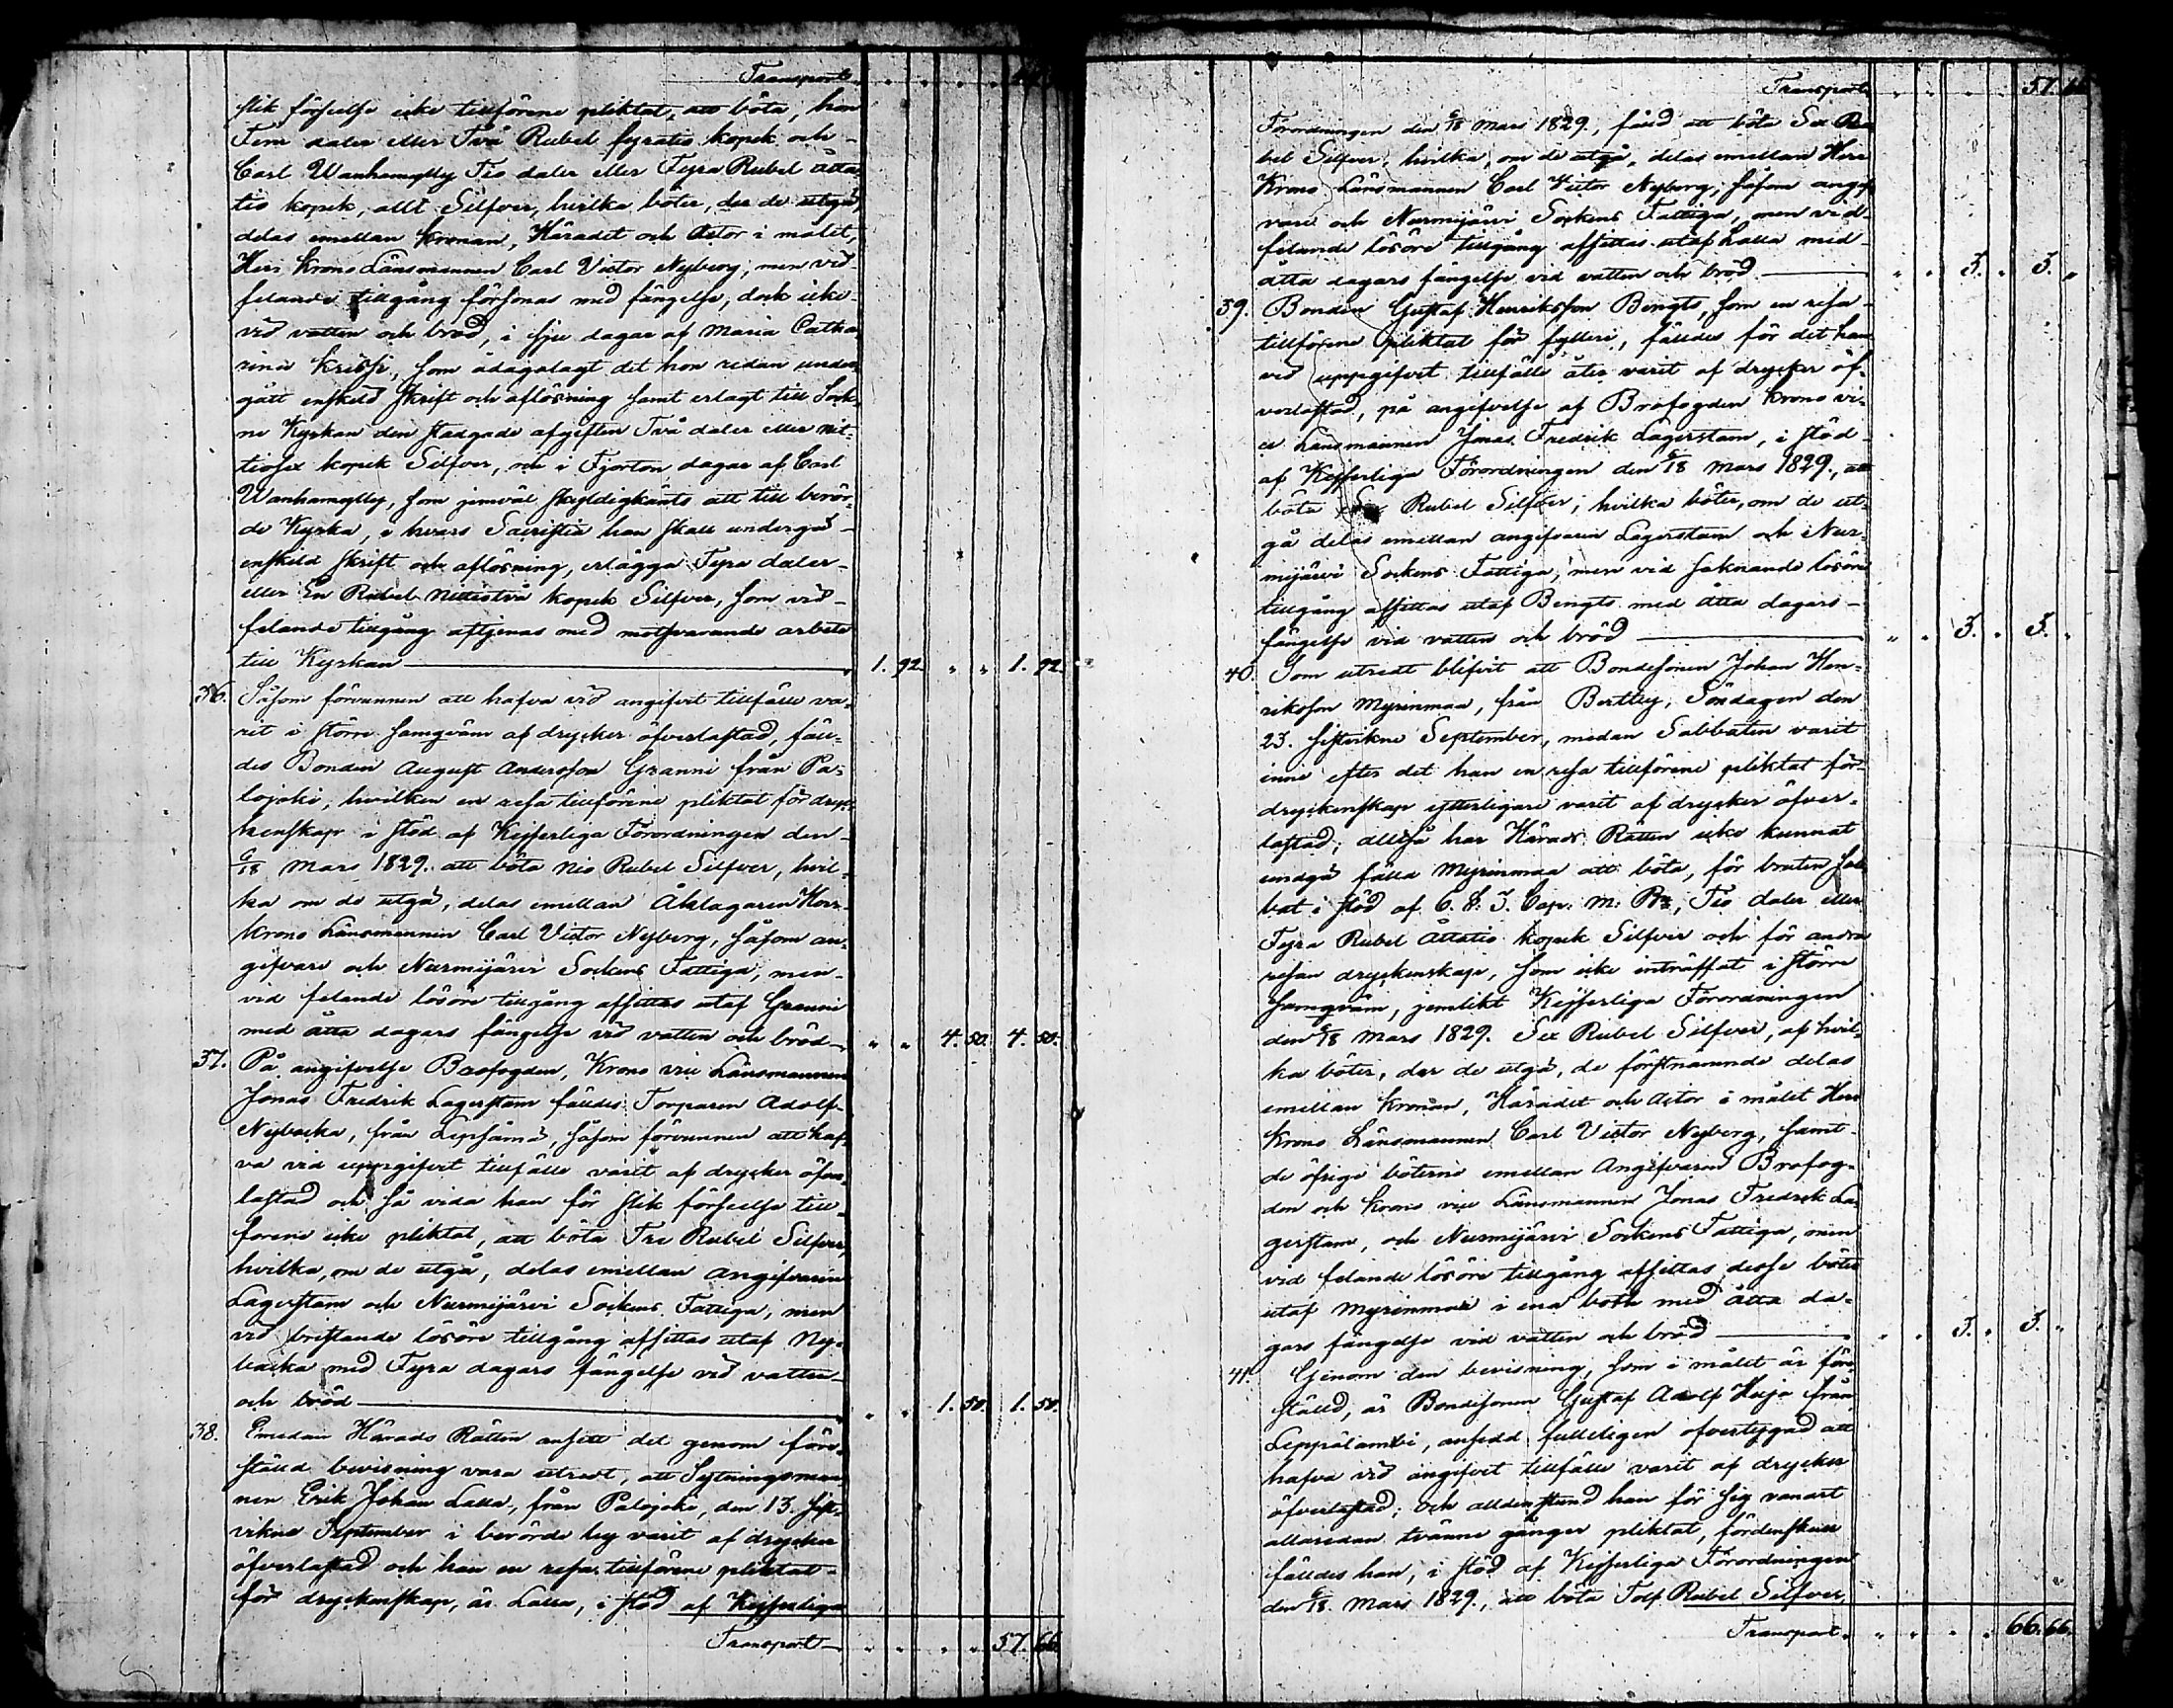 Transport
slik förseelse icke tillförene pliktat, att böta, hon
Fem daler eller Två Rubel fyratio kopek och
Carl Wanhamylly Tio daler eller Fyra Rubel åtta-
tio kopek, allt Silfver, hvilka böter, der de utgå,
delas emellan Kronan, Häradet och Actor i målet,
Herr Krono Länsmannen Carl Victor Nyberg, men vid
felande tillgång försonas med fängelse, dock icke
vid vatten och bröd, i sju dagar af Maria Catha-
rina, som ådagalagt det hon redan under-
gått enskild skrift och aflösning samt erlagt till Sock-
ne Kyrkan den stadgade afgiften Två daler eller nit-
tiosex kopek Silfver, och i Fjorton dagar af Carl
Wanhamylly, som jemväl skyldigkänts att till berör-
de Kyrka, i hvars Sacristia han skall undergå
enskild skrift och aflösning, erlägga Fyra daler
eller En Rubel Nittiotvå kopek Silfver, som vid
felande tillgång aftjenas med motsvarande arbete
till Kyrkan 1. 92. " " 1. 92.
36. Såsom förvunnen att hafva vid angifvet tillfälle va-
rit i större samqväm af drycker öfverlastad, fäll-
des Bonden August Andersson Granni från Pa-
lojoki, hvilken en resa tillförene pliktat för dryc-
kenskap i stöd af Kejserliga Förordningen den
6/18 Mars 1829. att böta Nio Rubel Silfver, hvil-
ka om de utgå, delas emellan Åklagaren Herr
Krono Länsmannen Carl Victor Nyberg, såsom an-
gifvare och Nurmijärvi Sockens Fattiga, men
vid felande lösöre tillgång afsittas utaf Granni
med åtta dagars fängelse vid vatten och bröd " " 4. 50. 4. 50.
37. På angifvelse Brofogden, Krono vice Länsmannen
Jonas Fredrik Lagerstam fälldes Torparen Adolf
Nybacka, från Lepsämä, såsom förvunnen att haf-
va vid uppgifvet tillfälle varit af drycker öfver-
lastad och så vida han för slik förseelse till-
förene icke pliktat, att böta Tre Rubel Silfver,
hvilka, om de utgå, delas emellan angifvaren
Lagerstam och Nurmijärvi Sockens Fattiga, men
vid bristande lösöre tillgång afsittas utaf Ny-
backa med Fyra dagars fängelse vid vatten
och bröd " " 1. 50. 1. 50.
38. Emedan Härads Rätten ansett det genom före-
ställd bevisning vara utredt, att Sytningsman-
nen Erik Johan Lalla, från Palojoki, den 13 sist-
vikne September i berörde by varit af drycker
öfverlastad och han en resa tillförene pliktat
för dryckenskap, är Lalla, i stöd af Kejserliga
Transport " " " " 57. 66.
Transport " " " " 57. 66
Förordningen den 6/18 Mars 1829, fälld att böta Sex Ru-
bel Silfver, hvilka, om de utgå, delas emellan Herr
Krono Länsmannen Carl Victor Nyberg, såsom angif-
vare och Nurmijärvi Sockens Fattiga, men vid
felande lösöre tillgång afsittas utaf Lalla med
åtta dagars fängelse vid vatten och bröd " " 3. " 3. "
39. Bonden Gustaf Henriksson Bengts, som en resa
tillförene pliktat för fylleri, fälldes för det han
vid uppgifvet tillfälle åter varit af drycker öf-
verlastad, på angifvelse af Brofogden Krono vi-
ce Länsmannen Jonas Fredrik Lagerstam, i stöd
af Kejserliga Förordningen den 6/18 Mars 1829, att
böta Sex Rubel Silfver, hvilka böter, om de ut-
gå delas emellan angifvaren Lagerstam och Nur-
mijärvi Sockens Fattiga, men vid saknande lösöre
tillgång afsittas utaf Bengts med åtta dagars
fängelse vid vatten och bröd " " 3. " 3. "
40. Som utredt blifvit att Bondesonen Johan Hen-
riksson Myrinmaa, från Perttby, Söndagen den
23. sistvikne September, medan Sabbaten varit
inne efter det han en resa tillförene pliktat för
dryckenskap ytterligare varit af drycker öfver-
lastad; alltså har Härads Rätten icke kunnat
undgå fälla Myrinmaa att böta, för bruten sab-
bat i stöd af 6. §. 3. Cap. M. B., Tio daler eller
Fyra Rubel Åttatio kopek Silfver och för andra
resan dryckenskap, som icke inträffat i större
samqväm, jemlikt Kejserliga Förordningen
den 6/18 Mars 1829. Sex Rubel Silfver, af hvil-
ka böter, der de utgå, de förstnämnde delas
emellan Kronan, Häradet och Actor i målet Herr
Krono Länsmannen Carl Victor Nyberg, samt
de öfrige böterne emellan Angifvaren Brofog-
den och Krono vice Länsmannen Jonas Fredrik La-
gerstam, och Nurmijärvi Sockens Fattiga, men
vid felande lösöre tillgång afsittas desse böter
utaf Myrinmaa i ena both med åtta da-
gars fängelse vid vatten och bröd " " 3. " 3. "
41. Genom den bevisning, som i målet är före-
ställd, är Bondesonen Gustaf Adolf från
Leppälambi, ansedd fulleligen öfvertygad att
hafva vid angifvet tillfälle varit af drycker
öfverlastad; och alldenstund han för sig vanart
allaredan tvänne gånger pliktat, fördenskull
fälldes han, i stöd af Kejserliga Förordningen
den 6/18 Mars 1829, att böta Tolf Rubel Silfver,
Transport. " " " " 66. 66.